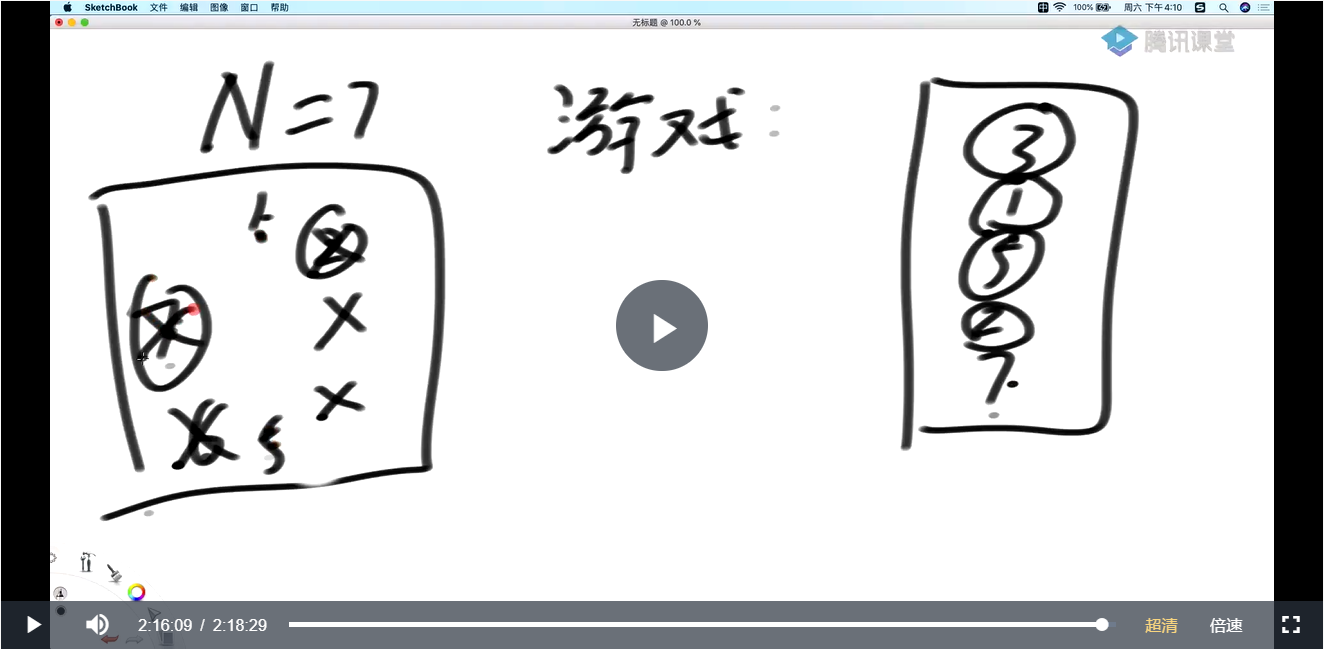 SketchBook 文件 编辑 图像 窗口 帮助 100% 周六 下午4:10
无标题 @ 100.0 %
腾讯课堂
N=7
游戏:
3
1
5
2
7
2:16:09 / 2:18:29 超清 倍速